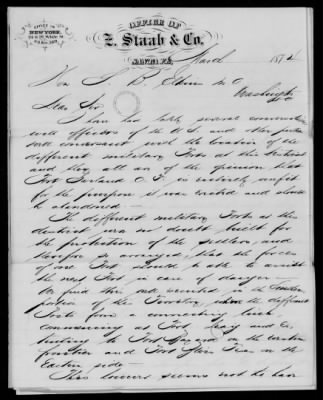 OFFICE OF
Z. Staab & Co.
SANTA FÉ,
NEW YORK,
March 1874
Hon S. B. Elkins M. C.
Washington
Dear Sir
I have had lately several
with officers of the U. S. and other parties
well conversant with the location of the
different military Forts of this
and they all are of the opinion that
Fort Garland C. T. is entirely unfit
for the purpose it was erected and should
be abandoned —
The different military Forts in this
district was no doubt built for
the protection of the settlers, and
therefore so arranged, that the forces
of one Fort should be able to assist
the next Fort in case of danger.
We find this well executed in the Southern
portion of this Territory where the different
Forts form a connecting link,
commencing at Fort Craig and
to Fort Bayard on the
frontier and Fort Stanton on the
Eastern side —
This however seems not to have